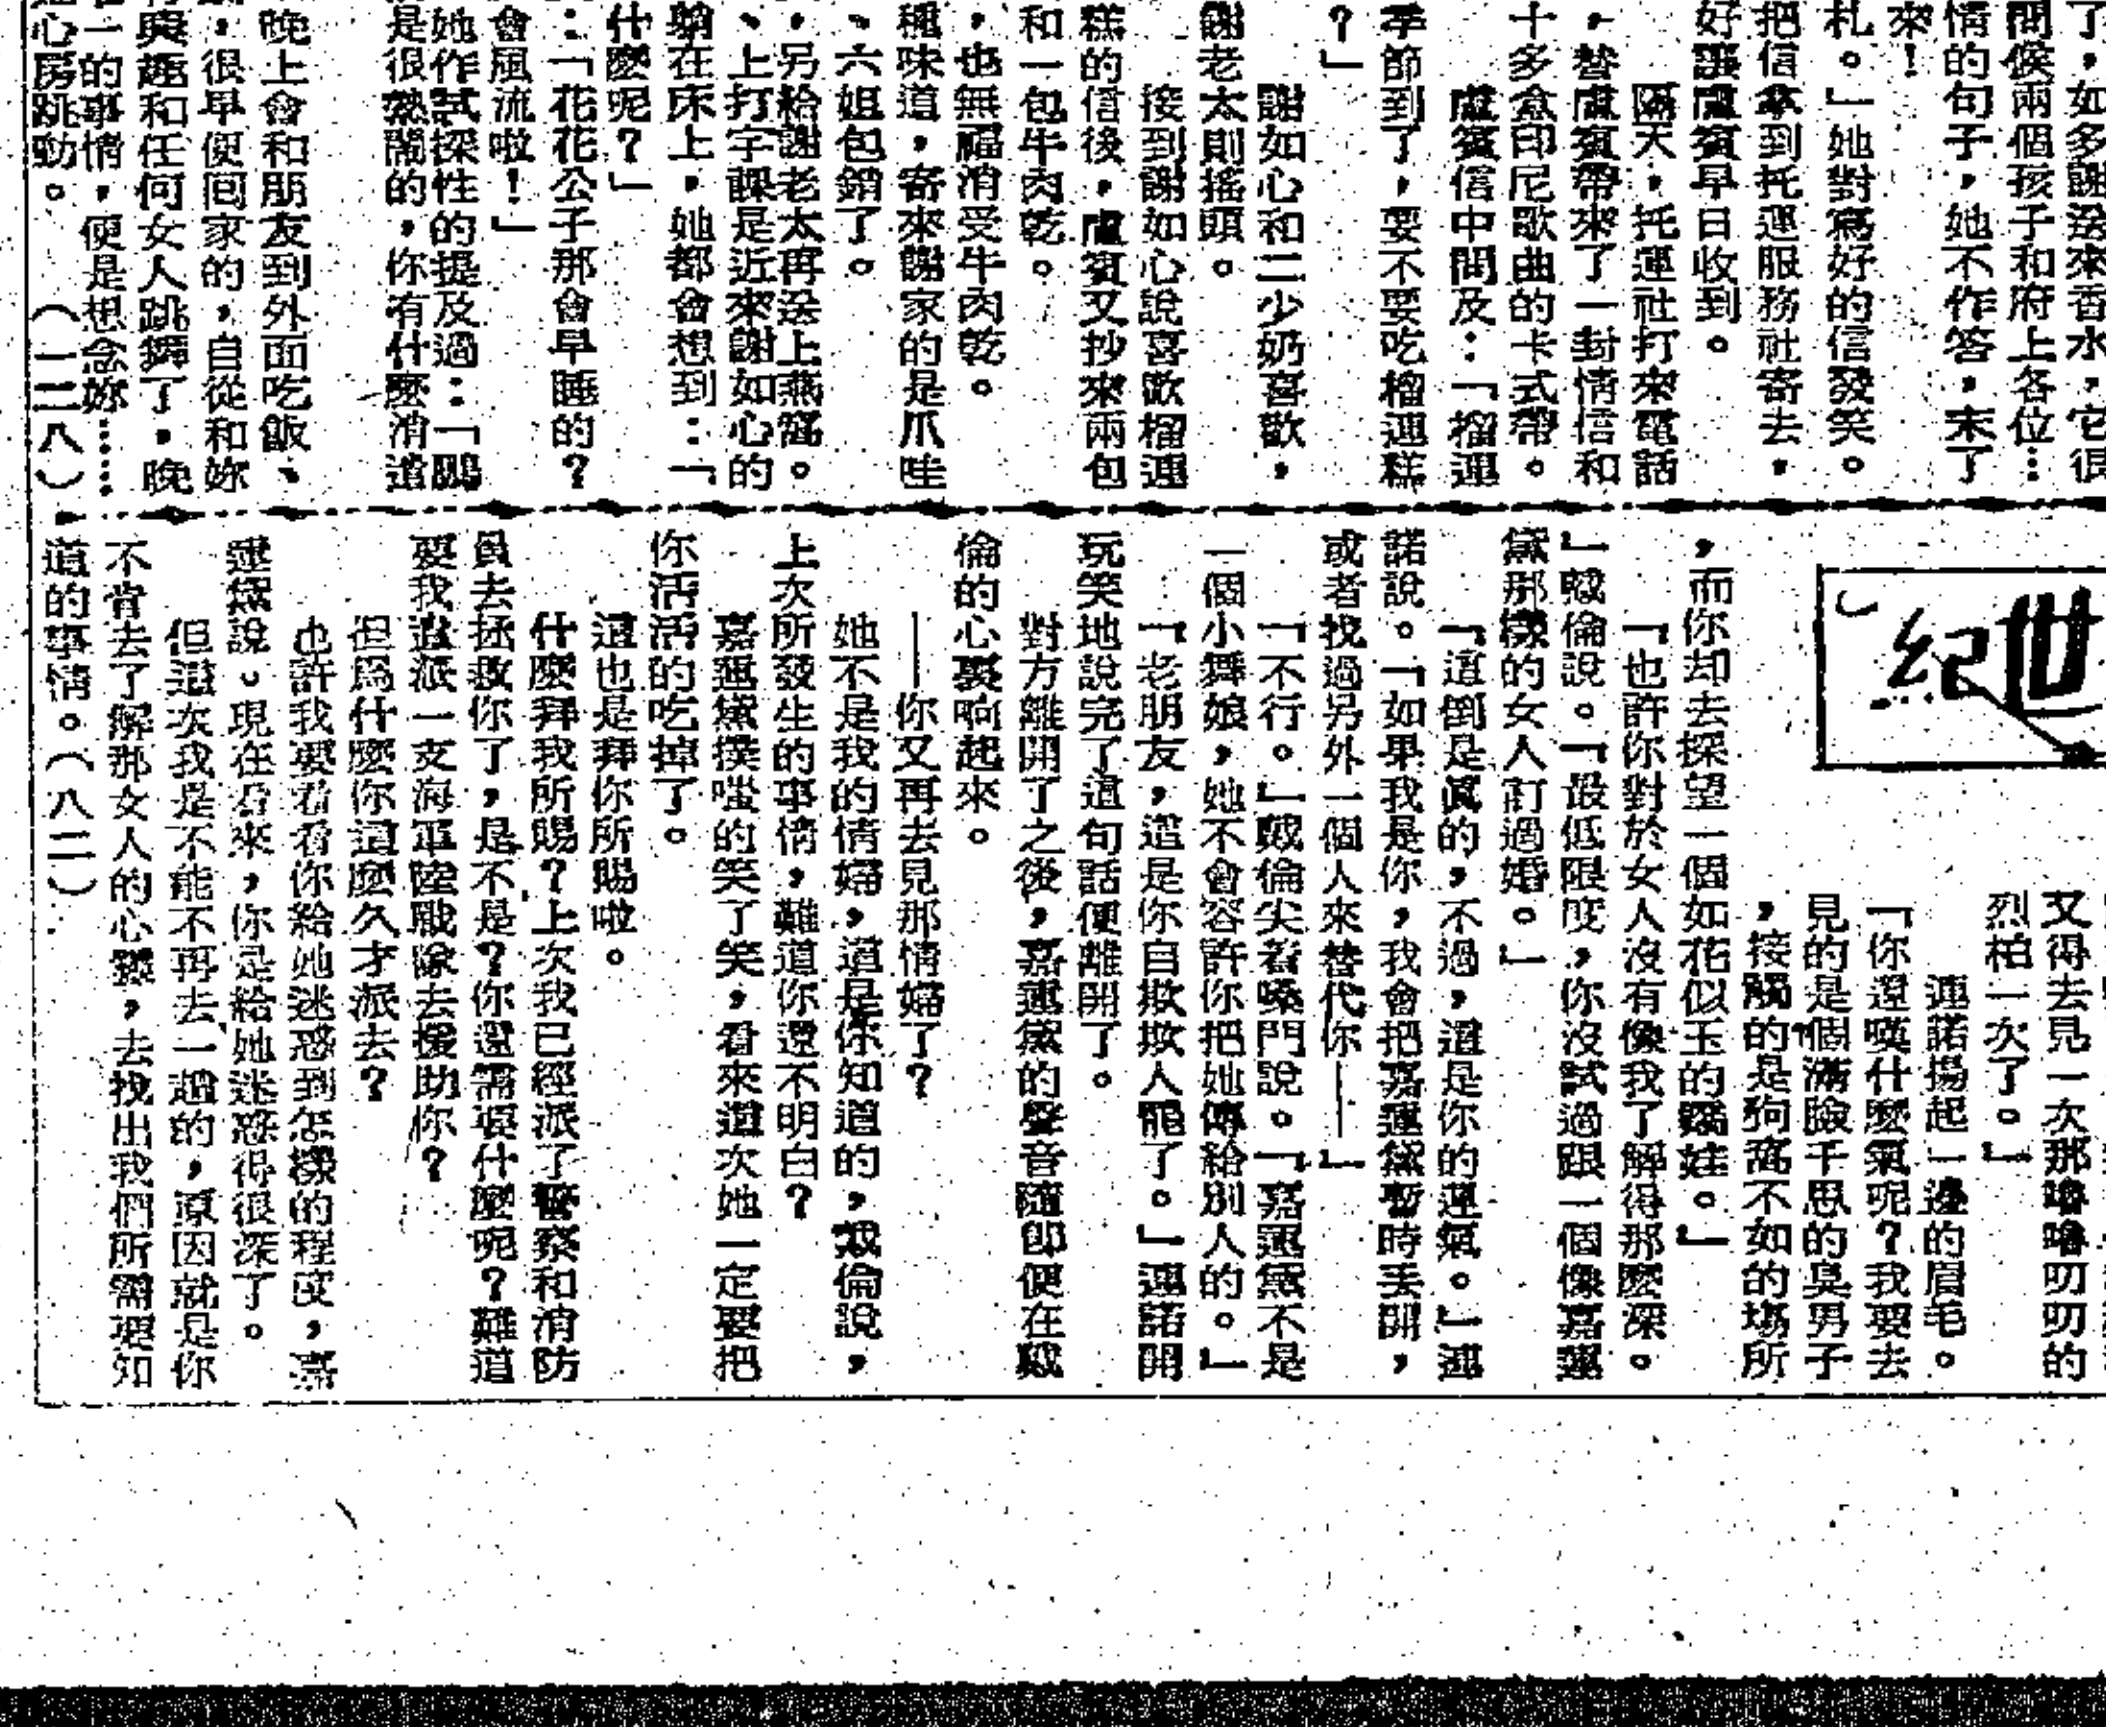 了，如多謝送來香水，它很
問候兩個孩子和府上各位…
情的句子，她不作答，末了
來！
札。」她對寫好的信發笑。
把信拿到托運服務社寄去，
好讓盧賓早日收到。
隔天，托運社打來電話
，替盧賓帶來了一封情信和
十多盒印尼歌曲的卡式帶。
盧賓信中問及：「榴連
季節到了，要不要吃榴連糕
？」
謝如心和二少奶喜歡，
謝老太則搖頭。
接到謝如心說喜歡榴連
糕的信後，盧賓又抄來兩包
和一包牛肉乾。
，也無福消受牛肉乾。
種味道，寄來謝家的是爪哇
、六姐包銷了。
，另給謝老太再送上燕窩。
、上打字課是近來謝如心的
躺在床上，她都會想到：「
什麼呢？」
：「花花公子那會早睡的？
會風流啦！」
她作試探性的提及過：「鵰
是很熱鬧的，你有什麼消遣
晚上會和朋友到外面吃飯、
，很早便囘家的，自從和妳
興趣和任何女人跳舞了，晚
一的事情，便是想念妳……
心房跳動。　（一二八）
世紀
又得去見一次那嚕嚕叨叨的
烈柏一次了。」
連諾揚起一邊的眉毛。
「你還嘆什麼氣呢？我要去
見的是個滿臉千思的臭男子
，接觸的是狗窩不如的塲所
，而你却去探望一個如花似玉的嬌娃。」
「也許你對於女人沒有像我了解得那麼深。
」戲倫說。「最低限度，你沒試過跟一個像嘉蓮
黛那樣的女人訂過婚。」
「這倒是眞的，不過，這是你的運氣。」連
諾說。「如果我是你，我會把嘉蓮黛暫時丢開，
或者找過另外一個人來替代你——」
「不行。」戲倫尖着嗓門說。「嘉蓮黛不是
一個小舞娘，她不會容許你把她傳給別人的。」
「老朋友，這是你自欺欺人罷了。」連諾開
玩笑地說完了這句話便離開了。
對方離開了之後，嘉蓮黛的聲音隨卽便在戲
倫的心裏响起來。
——你又再去見那情婦了？
她不是我的情婦，這是你知道的，戲倫說，
上次所發生的事情，難道你還不明白？
嘉蓮黛撲嗤的笑了笑，看來這次她一定要把
你活活的吃掉了。
這也是拜你所賜啦。
什麼拜我所賜？上次我已經派了警察和消防
員去拯救你了，是不是？你還需要什麼呢？難道
要我派一支海軍陸戰隊去援助你？
但爲什麼你這麼久才派去？
也許我要看看你給她迷惑到怎樣的程度，嘉
蓮黛說。現在看來，你是給她迷惑得很深了。
但這次我是不能不再去一趟的，原因就是你
不肯去了解那女人的心靈，去找出我們所需要知
道的事情。（八二）